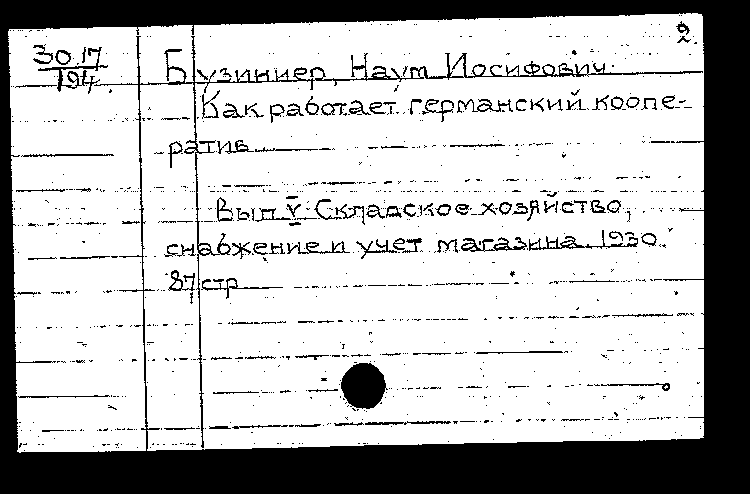 2.
30.17
194.
Бузиниер, Наум Иосифович.
Как работает германский коопе-
ратив
Вып V. Складское хозяйство,
снабжение и учет магазина. 1930.
87 стр